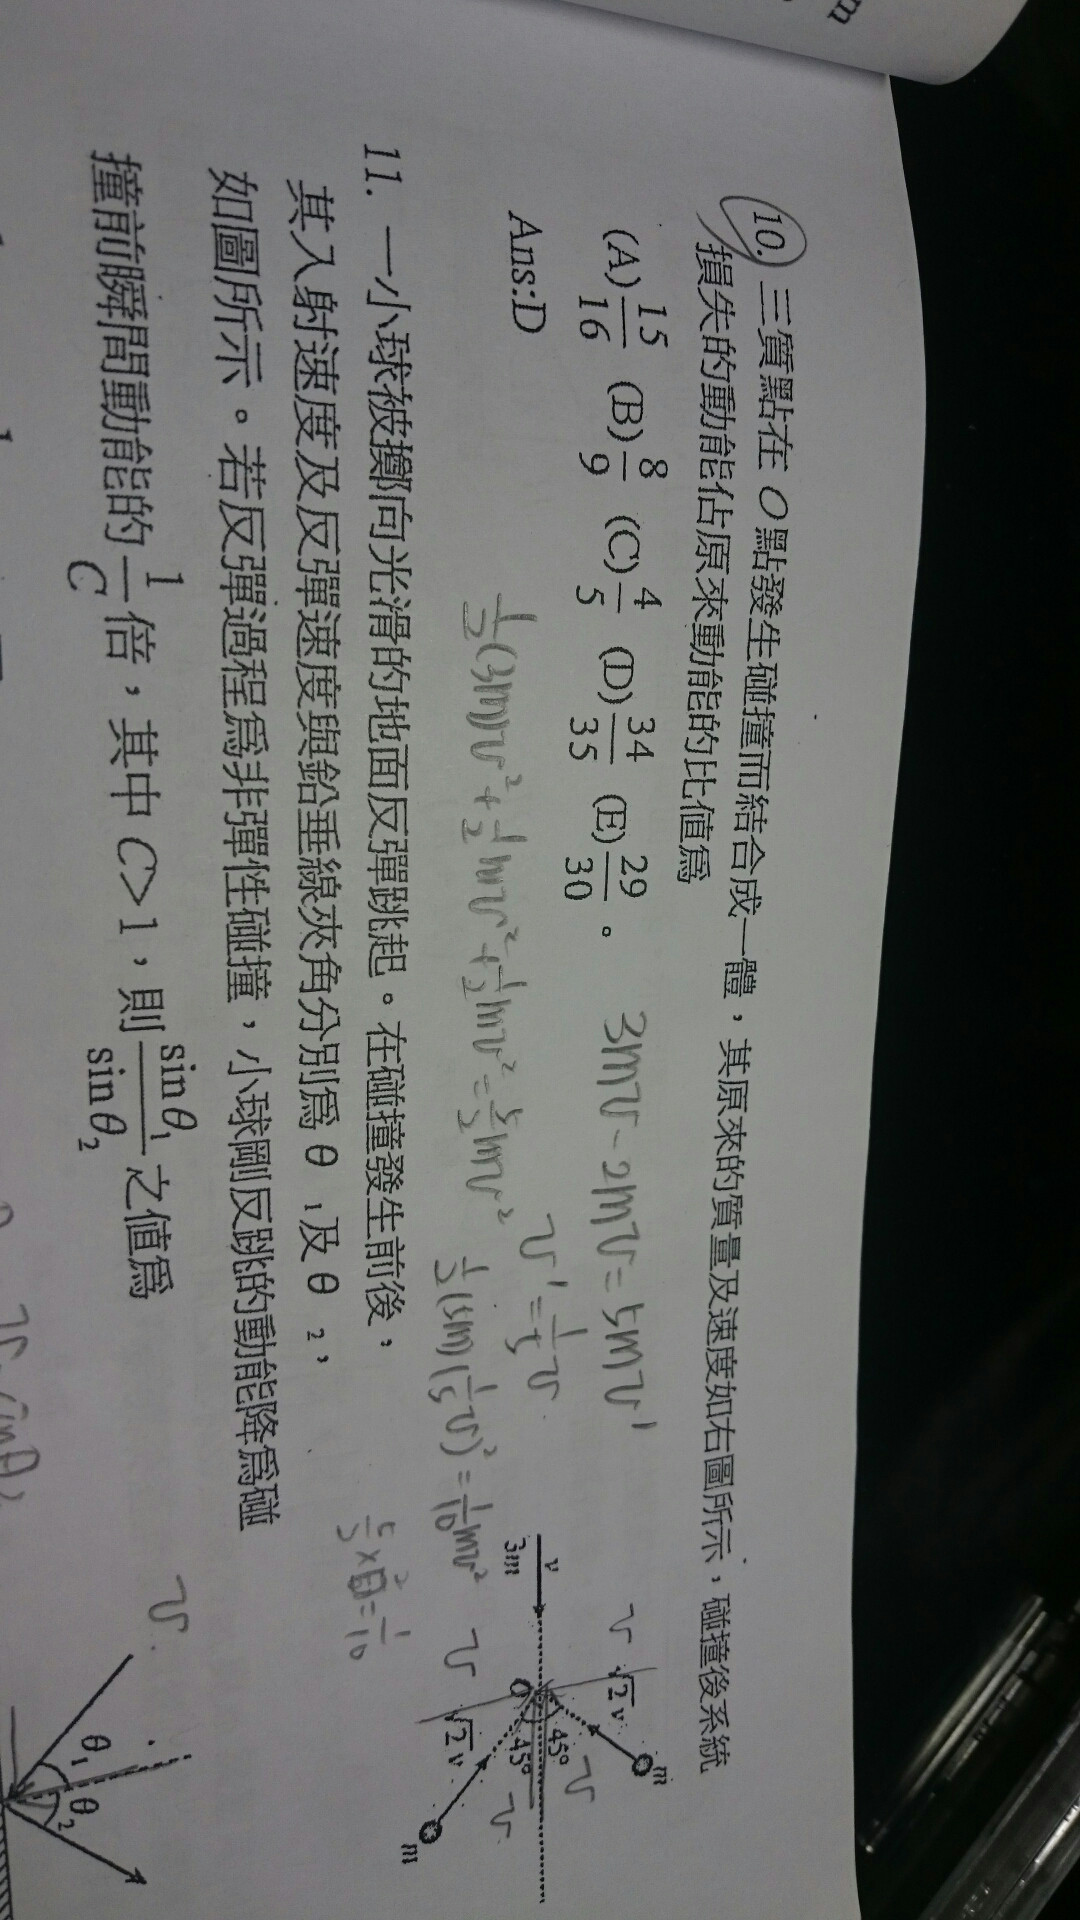 m
10. 三質點在 O點發生碰撞而結合成一體，其原來的質量及速度如右圖所示，碰撞後系統
損失的動能佔原來動能的比值為
(A) 15/16 (B) 8/9 (C) 4/5 (D) 34/35 (E) 29/30 。
3mv - 2mv = 5mv'
Ans:D
v' = 1/5 v
1/2(3m)v² + 1/2mv² + 1/2mv² = 5/2mv²
1/2(5m)(1/5v)² = 1/10mv²
v
3m
v
√2 v
m
45°
v
O
45°
v
v
√2 v
m
11. 一小球被擲向光滑的地面反彈跳起。在碰撞發生前後，
其入射速度及反彈速度與鉛垂線夾角分別為 θ₁及 θ₂，
如圖所示。若反彈過程為非彈性碰撞，小球剛反跳的動能降為碰
撞前瞬間動能的 1/C 倍，其中 C>1，則 sinθ₁/sinθ₂ 之值為
v
θ₁
θ₂